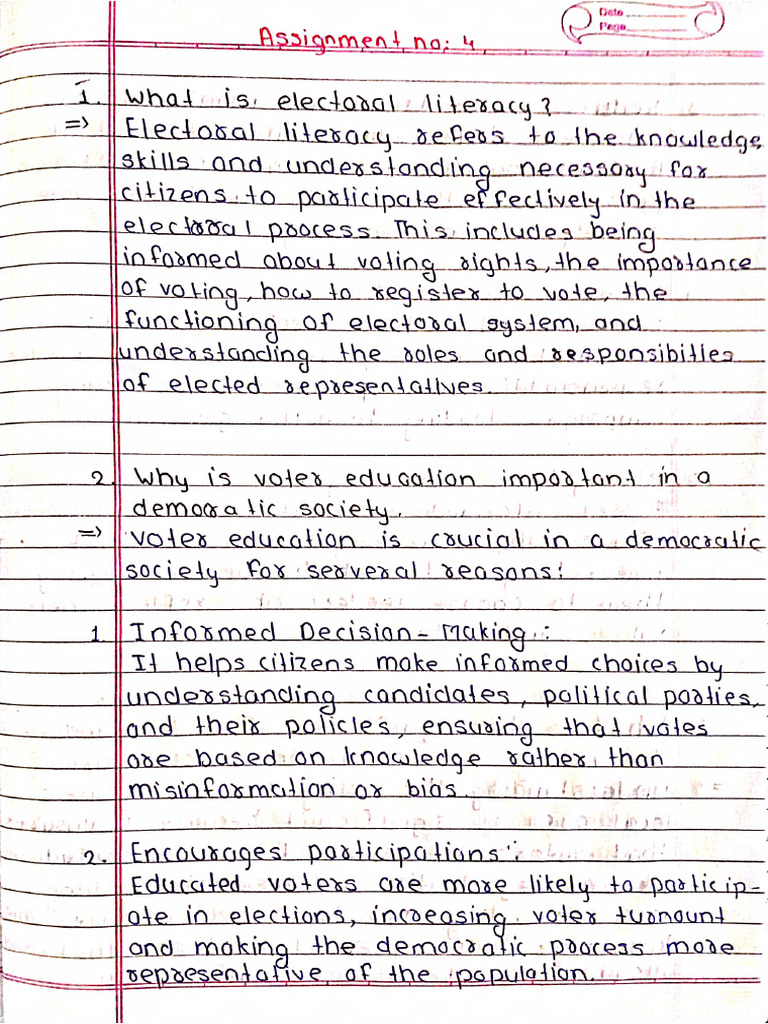 Date
Page
Assignment no: 4
1. What is electoral literacy?
=> Electoral literacy refers to the knowledge,
skills and understanding necessary for
citizens to participate effectively in the
electoral process. This includes being
informed about voting rights, the importance
of voting, how to register to vote, the
functioning of electoral system, and
understanding the roles and responsibities
of elected representatives.
2. Why is voter education important in a
democratic society.
=> Voter education is crucial in a democratic
society for serveral reasons:
1. Informed Decision - Making :
It helps citizens make informed choices by
understanding candidates, political parties,
and their policies, ensuring that votes
are based on knowledge rather than
misinformation or bias.
2. Encourages participations :
Educated voters are more likely to particip-
ate in elections, increasing voter turnount
and making the democratic process more
representative of the population.